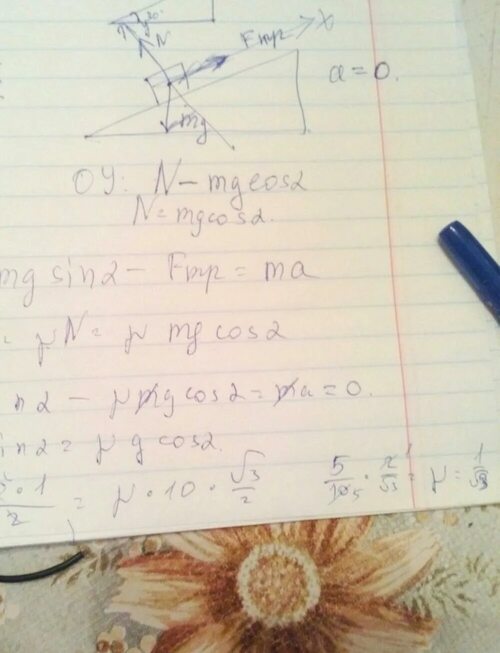 30°
N
Fтр
x
a = 0.
mg
OY: N - mg cos α
N = mg cos α.
mg sin α - Fтр = ma
= μN = μ mg cos α
in α - μ mg cos α = ma = 0.
in α = μ g cos α.
1/2 = μ • 10 • √3/2
5/10 • 2/√3 = μ = 1/√3